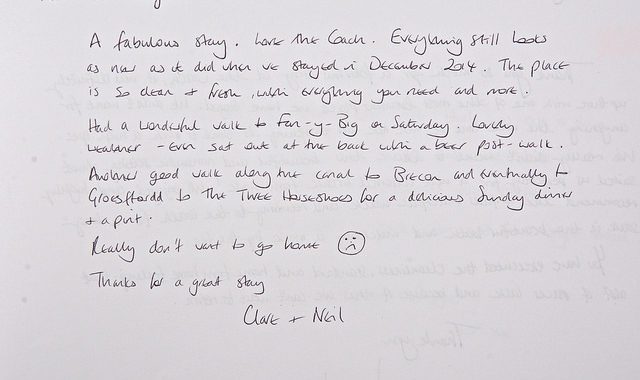 A fabulous stay. Love the Coach. Everything still looks
as new as it did when we stayed in December 2014. The place
is so clean + fresh, with everything you need and more.
Had a wonderful walk to Fan-y-Big on Saturday. Lovely
weather - even sat out at the back with a beer post-walk.
Another good walk along the canal to Brecon and eventually to
Groesffordd to the Three Horseshoes for a delicious Sunday dinner
+ a pint.
Really don't want to go home
Thanks for a great stay
Clare + Neil